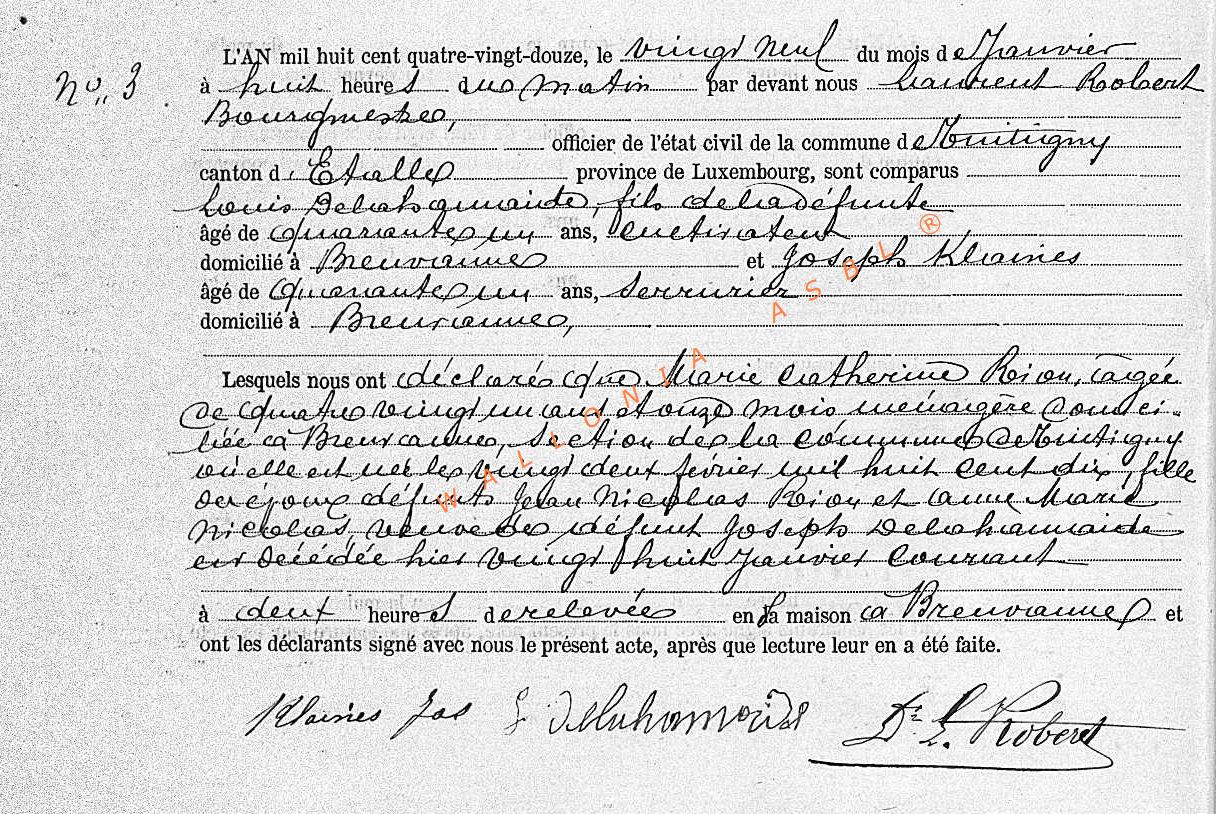 L'AN mil huit cent quatre-vingt-douze, le vingt neuf du mois de Janvier
N° 3
à huit heures du matin par devant nous Laurent Robert
Bourgmestre,
officier de l'état civil de la commune de Tintigny
canton d'Etalle province de Luxembourg, sont comparus
Louis Delahamaide, fils de la défunte
âgé de quarante un ans, cultivateur
domicilié à Breuvanne et Joseph Klaines
âgé de quarante un ans, serrurier
domicilié à Breuvanne,
Lesquels nous ont déclaré que Marie Catherine Riou, âgée
de quatre vingt un ans et onze mois ménagère domici-
liée à Breuvanne, section de la commune de Tintigny
où elle est née le vingt deux février mil huit cent dix, fille
des époux défunts Jean Nicolas Riou et Anne Marie
Nicolas, veuve de défunt Joseph Delahamaide
est décédée hier vingt huit Janvier courant
à deux heures de relevée en sa maison à Breuvanne et
ont les déclarants signé avec nous le présent acte, après que lecture leur en a été faite.
Klaines Jos L Delahamaide Dr L. Robert
WALLONIA ASBL ®